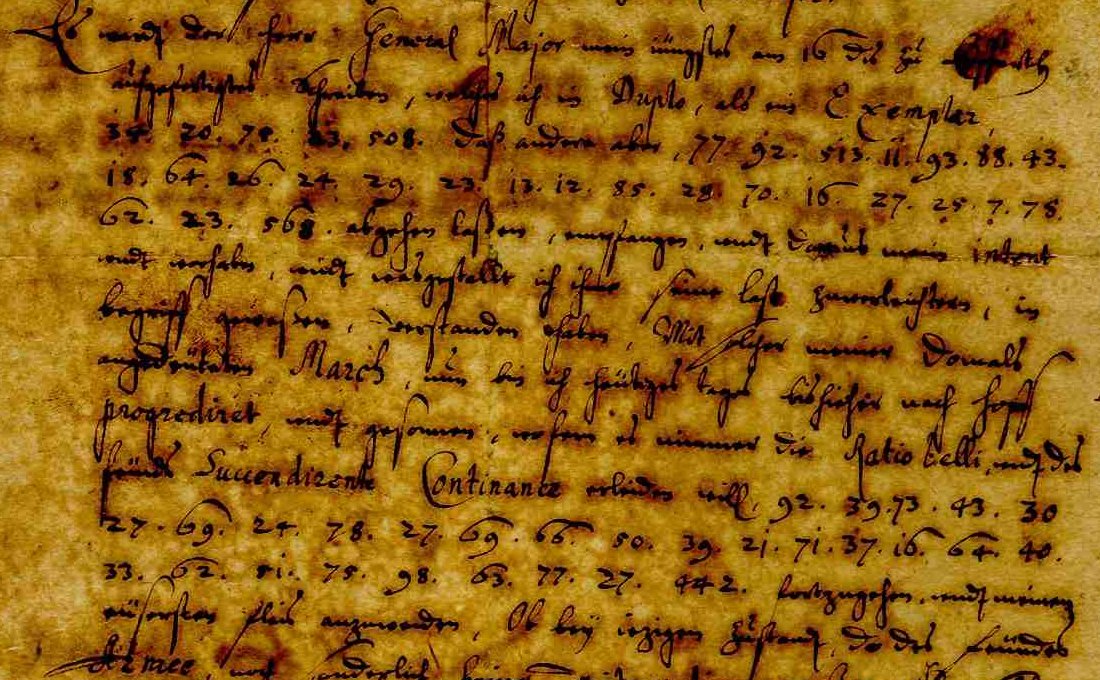 Es wirdt der Herr General Major mein jüngstes am 16 dis zu
außgefertigtes Schreiben, welches ich in Duplo, als ein Exemplar,
34. 20. 78. 23. 508. daß andere aber, 77. 92. 513. 11. 93. 88. 43.
18. 64. 26. 24. 29. 23. 13. 12. 85. 28. 70. 16. 27. 25. 7. 78.
62. 23. 568. abgehen laßen, empfangen, undt daraus mein intent
undt vorhaben, undt wasgestallt ich ihme seine last zuerleichtern, in
begriff gewesen, verstanden haben, Mit solcher meiner Domals
angedeuteten March, nun bin ich heutiges tages bishieher nach Hoff
progrediret, undt gesonnen, wofern es nimmer die Ratio belli, undt des
feinds Succendirente Continance erleiden will, 92. 39. 73. 43. 30
27. 69. 24. 78. 27. 69. 66. 50. 39. 21. 71. 37. 16. 64. 40.
33. 62. 51. 75. 98. 63. 77. 27. 442. fortzugehen, undt meinen
eusersten fleis anzuwenden, Ob bey iezigen Zustandt, do des feindes
Armee, sonderlich